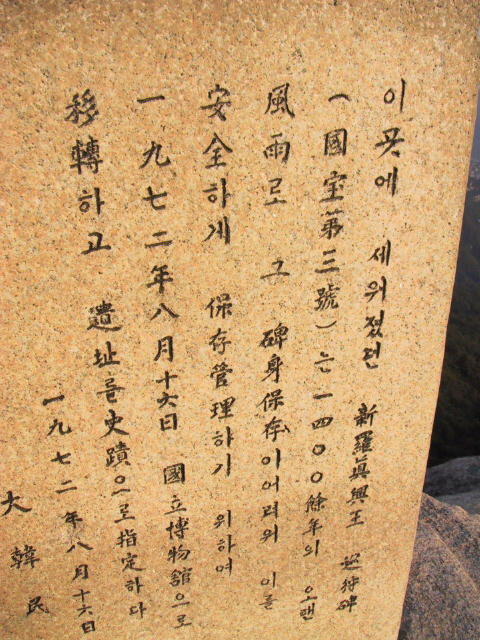 이곳에 세워졌던 新羅眞興王 巡狩碑
(國宝第三號)는 一四〇〇餘年의 오랜
風雨로 그 碑身保存이어려워 이를
安全하게 保存管理하기 위하여
一九七二年八月十六日 國立博物館으로
移轉하고 遺址를史蹟으로指定하다
一九七二年八月十六日
大韓民